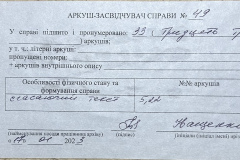 АРКУШ-ЗАСВІДЧУВАЧ СПРАВИ № 49
У справі підшито і пронумеровано 33 (тридцять т
) аркушів:
у т.ч.: літерні аркуші:
пропущені номери:
+ аркушів внутрішнього опису
Особливості фізичного стану та формування справи
№№ аркушів
текст
5,22
Ващенко
(найменування посади працівника архіву)
01 2023